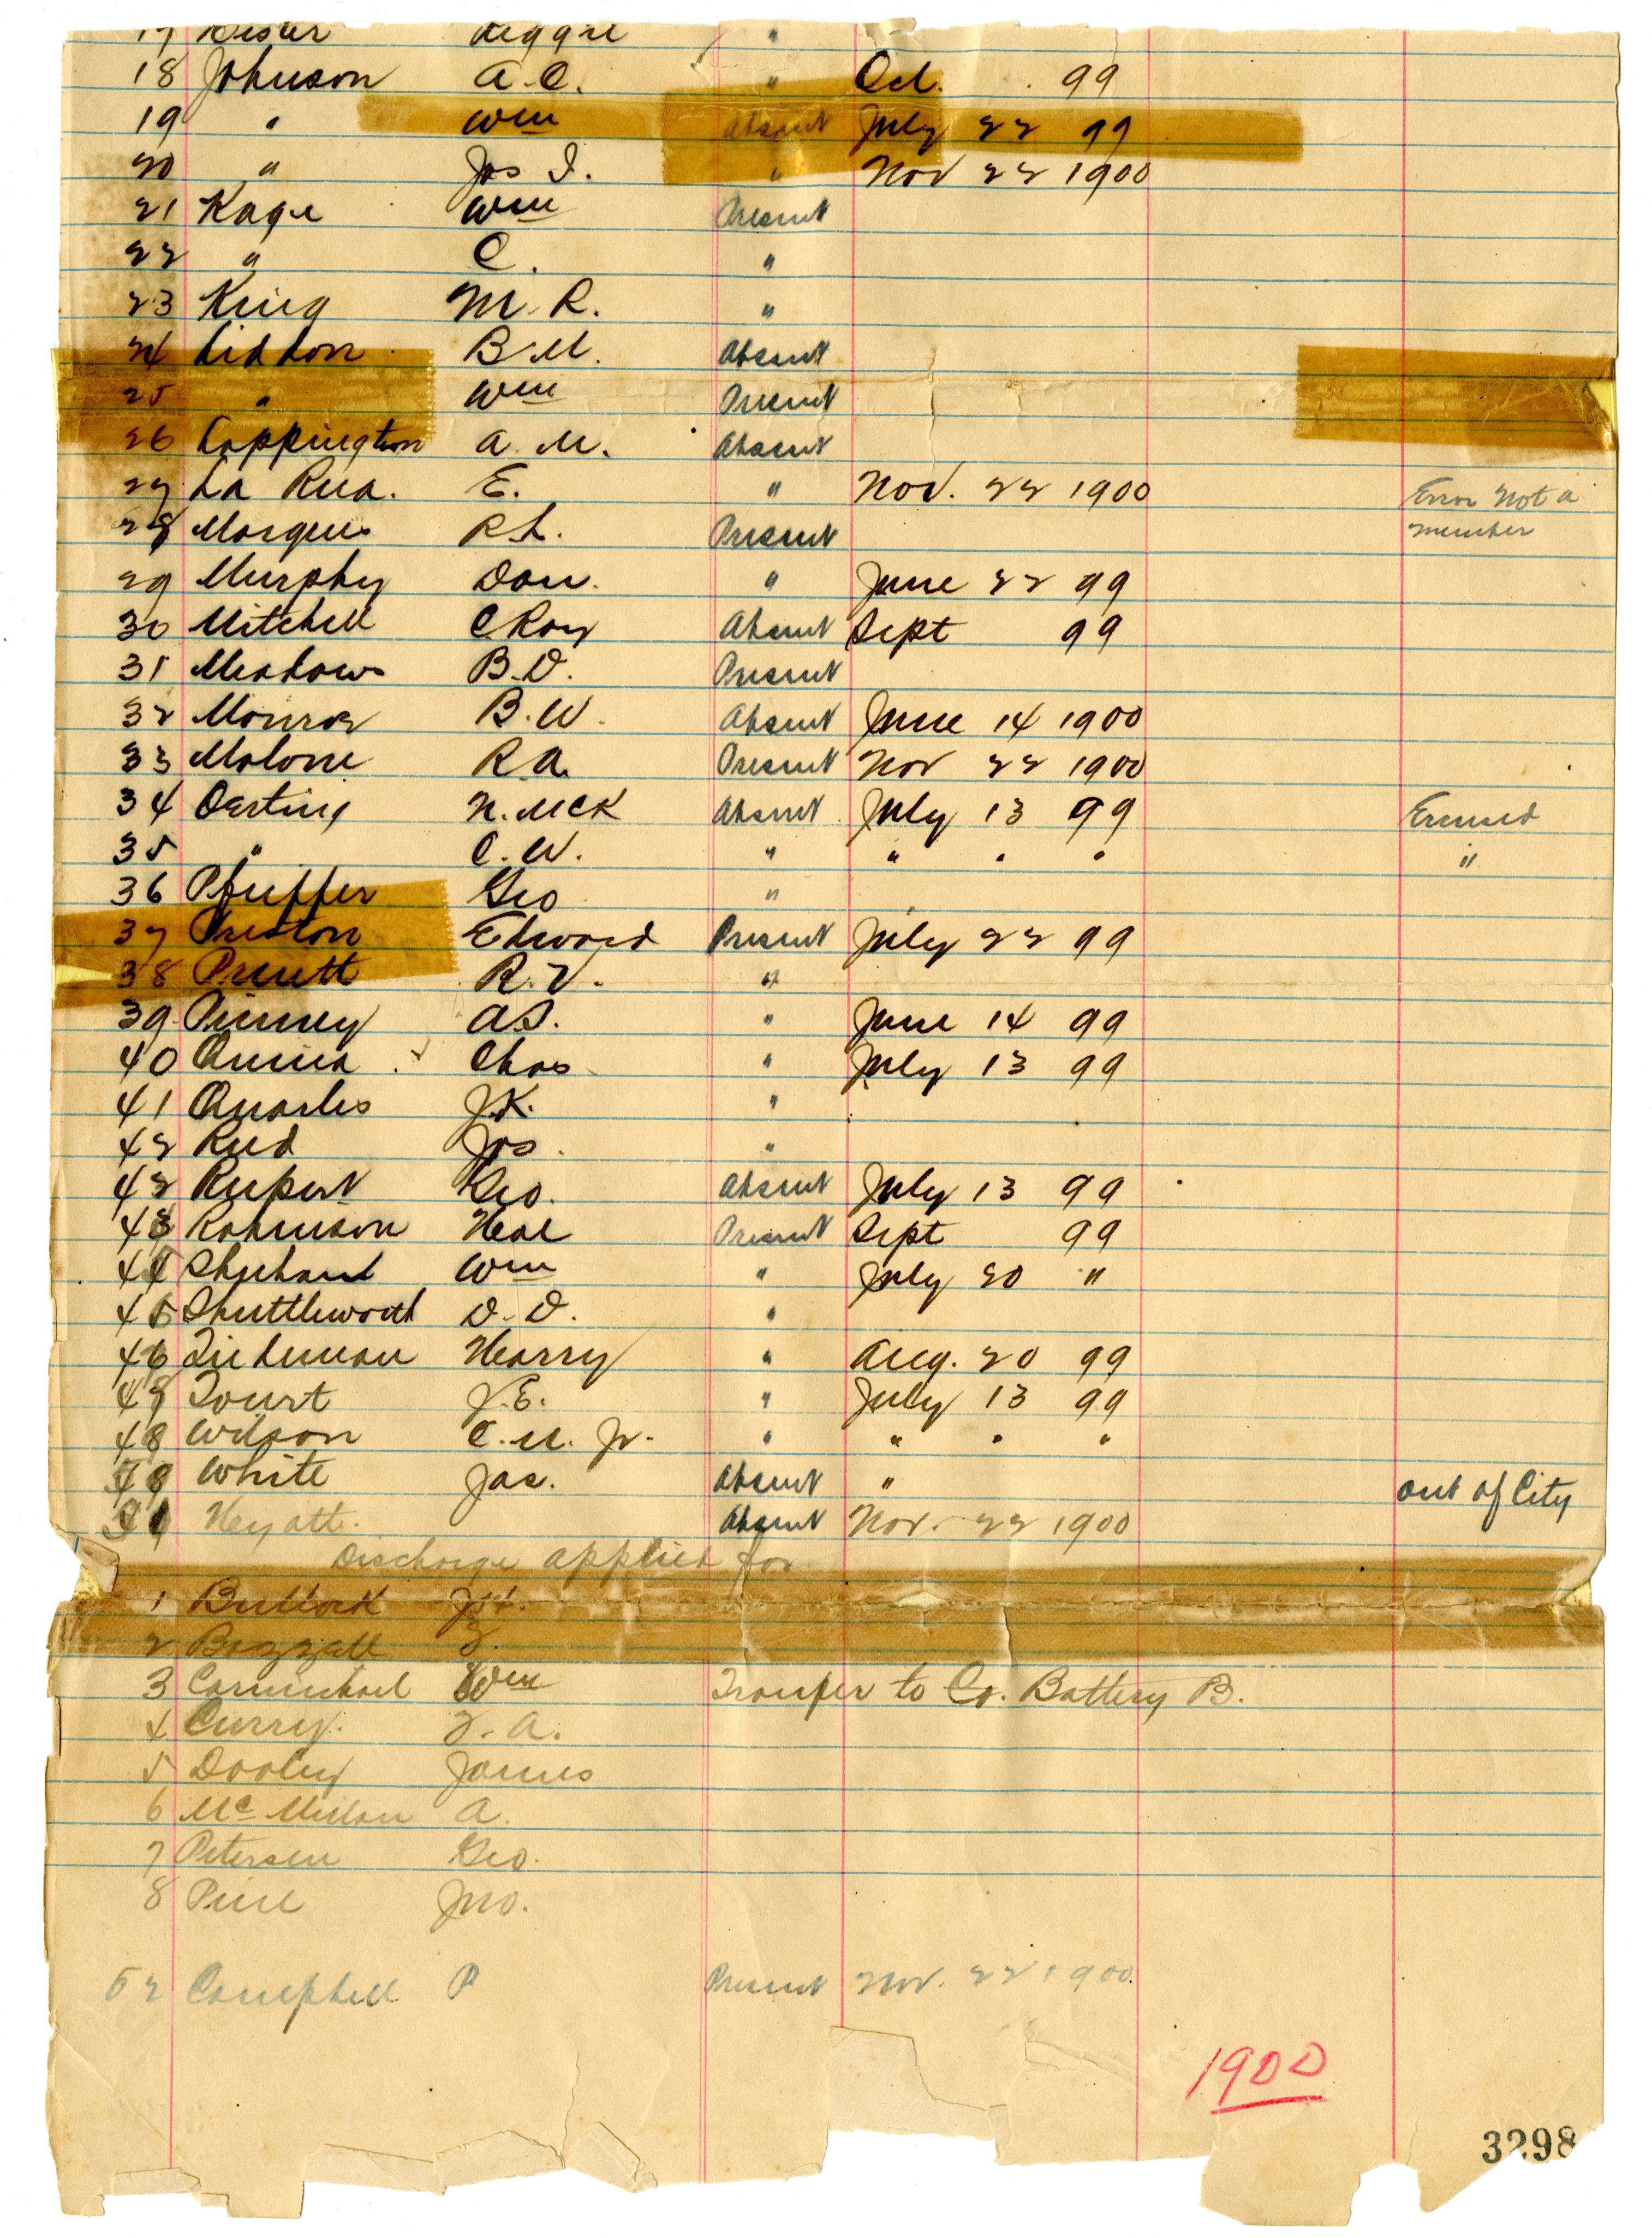 18 Johnson A. C. " Oct. 99
19 " Wm Absent July 22 99
20 " Jos I. " Nov 22 1900
21 Kage Wm Present
22 " C. "
23 King M. R. "
24 Liddon B. M. Absent
25 " Wm Present
26 Loppington A. M. Absent
27 La Rua. E. " Nov. 22 1900 Error not a
member
28 Marques R L. Present
29 Murphy Dan. " June 22 99
30 Mitchell C Roy Absent Sept 99
31 Meadows B. D. Present
32 Monroe B. W. Absent June 14 1900
33 Malone R. A. Present Nov 22 1900
34 Oerting N. McK Absent July 13 99 Excused
35 " C. W. " " " " "
36 Pfeiffer Geo "
37 Preston Edward Present July 22 99
38 Pruett R. V. "
39 Pinney A S. " June 14 99
40 Quina Chas " July 13 99
41 Quarles J. K. "
42 Reed Jos. "
42 Rupert Geo. Absent July 13 99
43 Robinson Neal Present Sept 99
44 Shuhard Wm " July 20 "
45 Shuttleworth D. D. "
46 Tiedeman Harry " Aug. 20 99
47 Touart J. E. " July 13 99
48 Wilson C. M. Jr. " " " "
49 White Jas. Absent " out of City
Hyatt. Absent Nov. 22 1900
Discharge applied for
1 Bullock
2 Bazzell Z.
3 Carmichael Wm Transfer to Co. Battery B.
4 Curry. Z. A.
5 Dooley James
6 Mc Millan A.
7 Petersen Geo.
8 Pine Jno.
52 Campbell P Present Nov. 22 1900
1900
3298